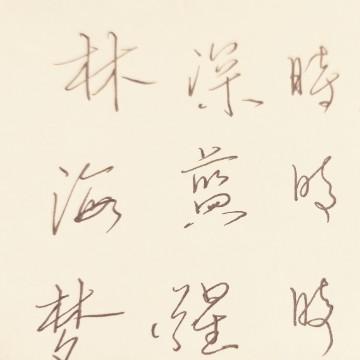 林深時
海藍時
梦醒時